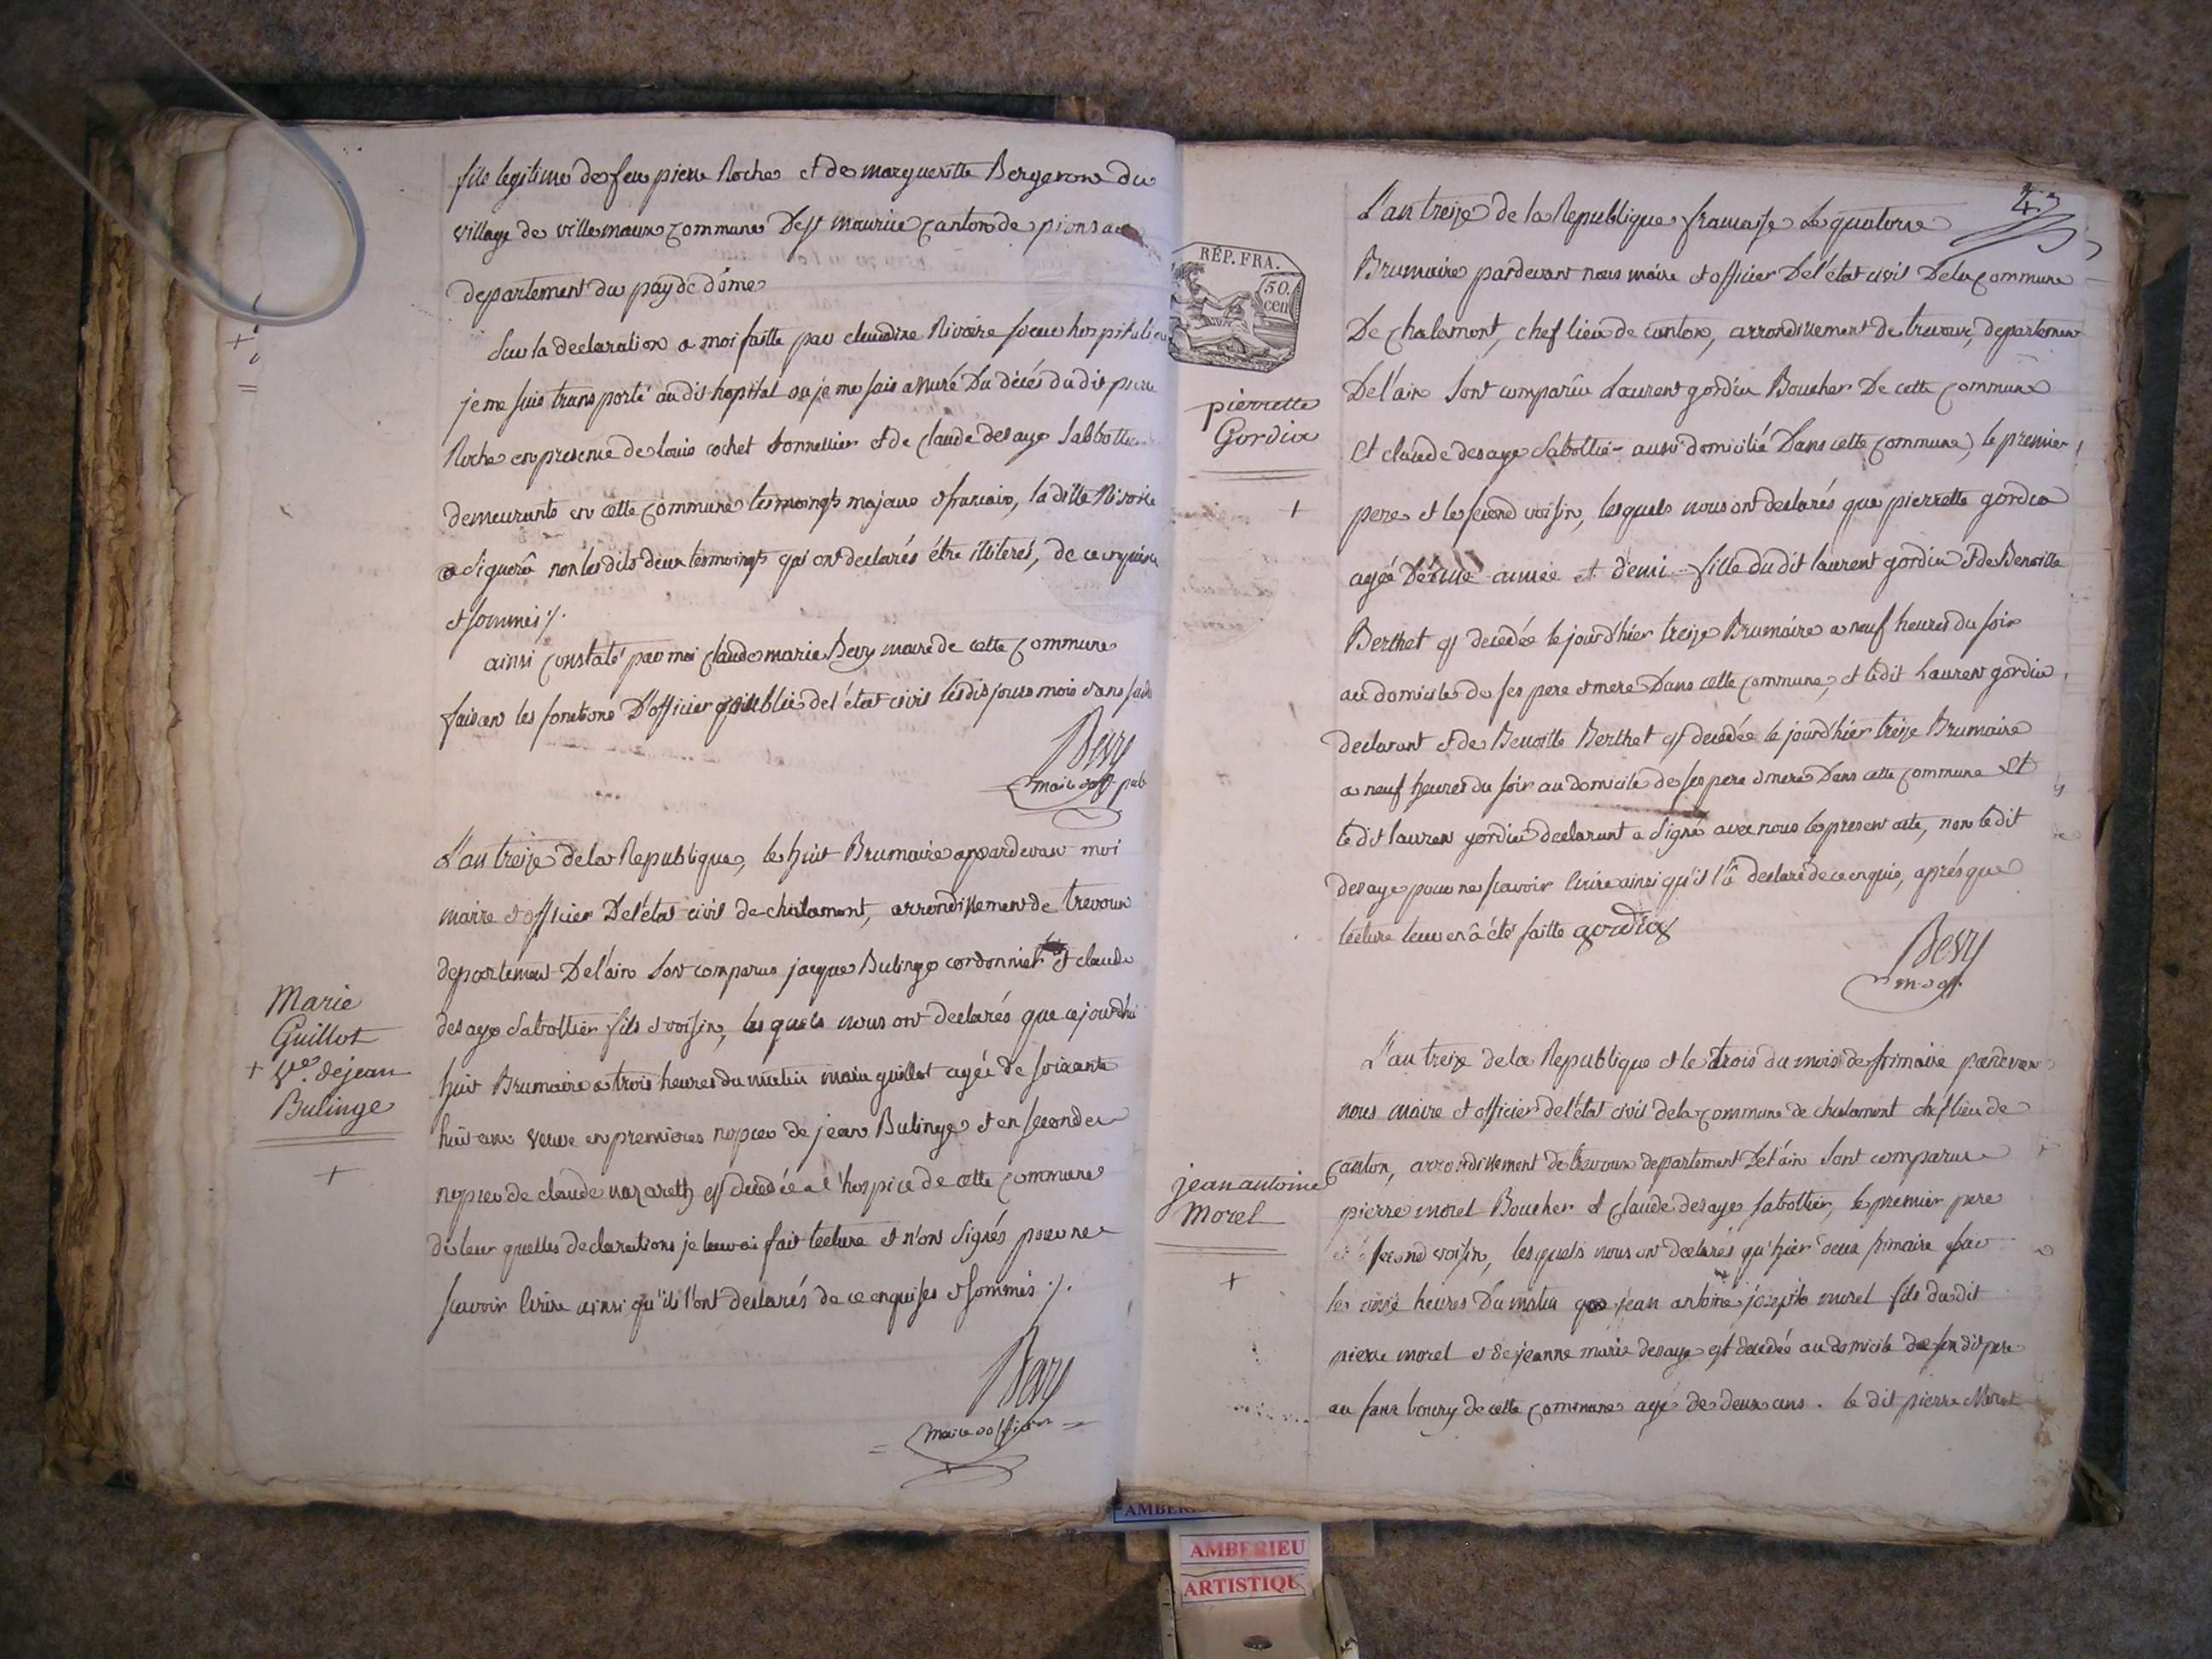 fils legitime de feu pierre Roche et de margueritte Bergeron du
village de villemaux commune De st maurice canton de pionsac
departement du puy de dôme
Sur la declaration a moi faitte par claudine Rivoire soeur hospitaliere
je me suis transporté au dit hopital ou je me suis assuré Du décés du dit pierre
Roche en presence de louis cochet tonnellier et de claude desaye Sabbottier
demeurants en cette commune tesmoingts majeurs et francais, la ditte Rivoire
a Signer non les dits deux tesmoingts qui ont declarés étre illiterés, de ce enquis
et sommés ./.
ainsi constaté par moi claude marie Bevy maire de cette commune
faisant les fonctions D'officier publié de l'état civil les dis jours mois et ans susdit
Bevy
maire off. pub
L'an treize de la Republique, le huit Brumaire appardevant moi
maire et officier De létat civil de chalamont, arrondissement de trevoux
departement De l'ain Sont comparus jacques Bulinge cordonnier et claude
desaye Sabottier fils et voisin, les quels nous ont declarés que cejourd'hui
huit Brumaire a trois heures du matin marie guillot agée de soixante
huit ans veuve en premieres nopces de jean Bulinge et en secondes
nopces de claude nazareth est decedée a l'hospice de cette commune
des leur quelles declarations je leur ai fait lecture et n'ont Signés pour ne
scavoir lirire ainsi qu'ils l'ont declarés de ce enquises et sommés ./.
Bevy
maire officier
Marie
Guillot
+ Ve. de jean
Bulinge
+
43
RÉP. FRA.
50.
cen
L'an treize de la Republique francaise Le quatorze
Brumaire pardevant nous maire et officier De l'état civil De la commune
De chalamont, chef lieu de canton, arrondissement de trevoux, departement
De l'ain Sont comparûs Laurent gordin Boucher De cette commune
et claude desaye Sabottier aussi domicilié Dans cette commune, le premier
pere et le second voisin, lesquels nous ont declarés que pierrette gordin
agée D'éune année et demi fille du dit laurent gordin et de Benoitte
Berthet est decedée le jourd'hier treize Brumaire a neuf heures du soir
au domicile de ses pere et mere Dans cette commune, et ledit Laurent gordin
declarant et de Benoitte Berthet est decedée le jourd'hier treize Brumaire
a neuf heures du soir au domicile de ses pere et mere Dans cette commune et
le dit laurent gordin declarant a Signé avec nous le present acte, non le dit
desaye pour ne scavoir lirire ainsi qu'il l'â declaré de ce enquis, aprés que
lecture leur en â été faitte gordin
Bevy
m. off.
pierrette
Gordin
+
L'an treize de la Republique et le trois du mois de frimaire pardevant
nous maire et officier de l'état civil de la commune de chalamont chef lieu de
canton, arrondissement de trevoux departement De l'ain Sont comparus
pierre morel Boucher et claude desaye sabottier, le premier pere
et le second voisin, lesquels nous ont declarés qu'hier deux frimaire sur
les onze heures Du matin que jean antoine joseph morel fils du dit
pierre morel et de jeanne marie desaye est decedée au domicile de son dit pere
au faux bourg de cette commune agé de deux ans. le dit pierre Morel
jean antoine
Morel
+
AMBERIEU
ARTISTIQU